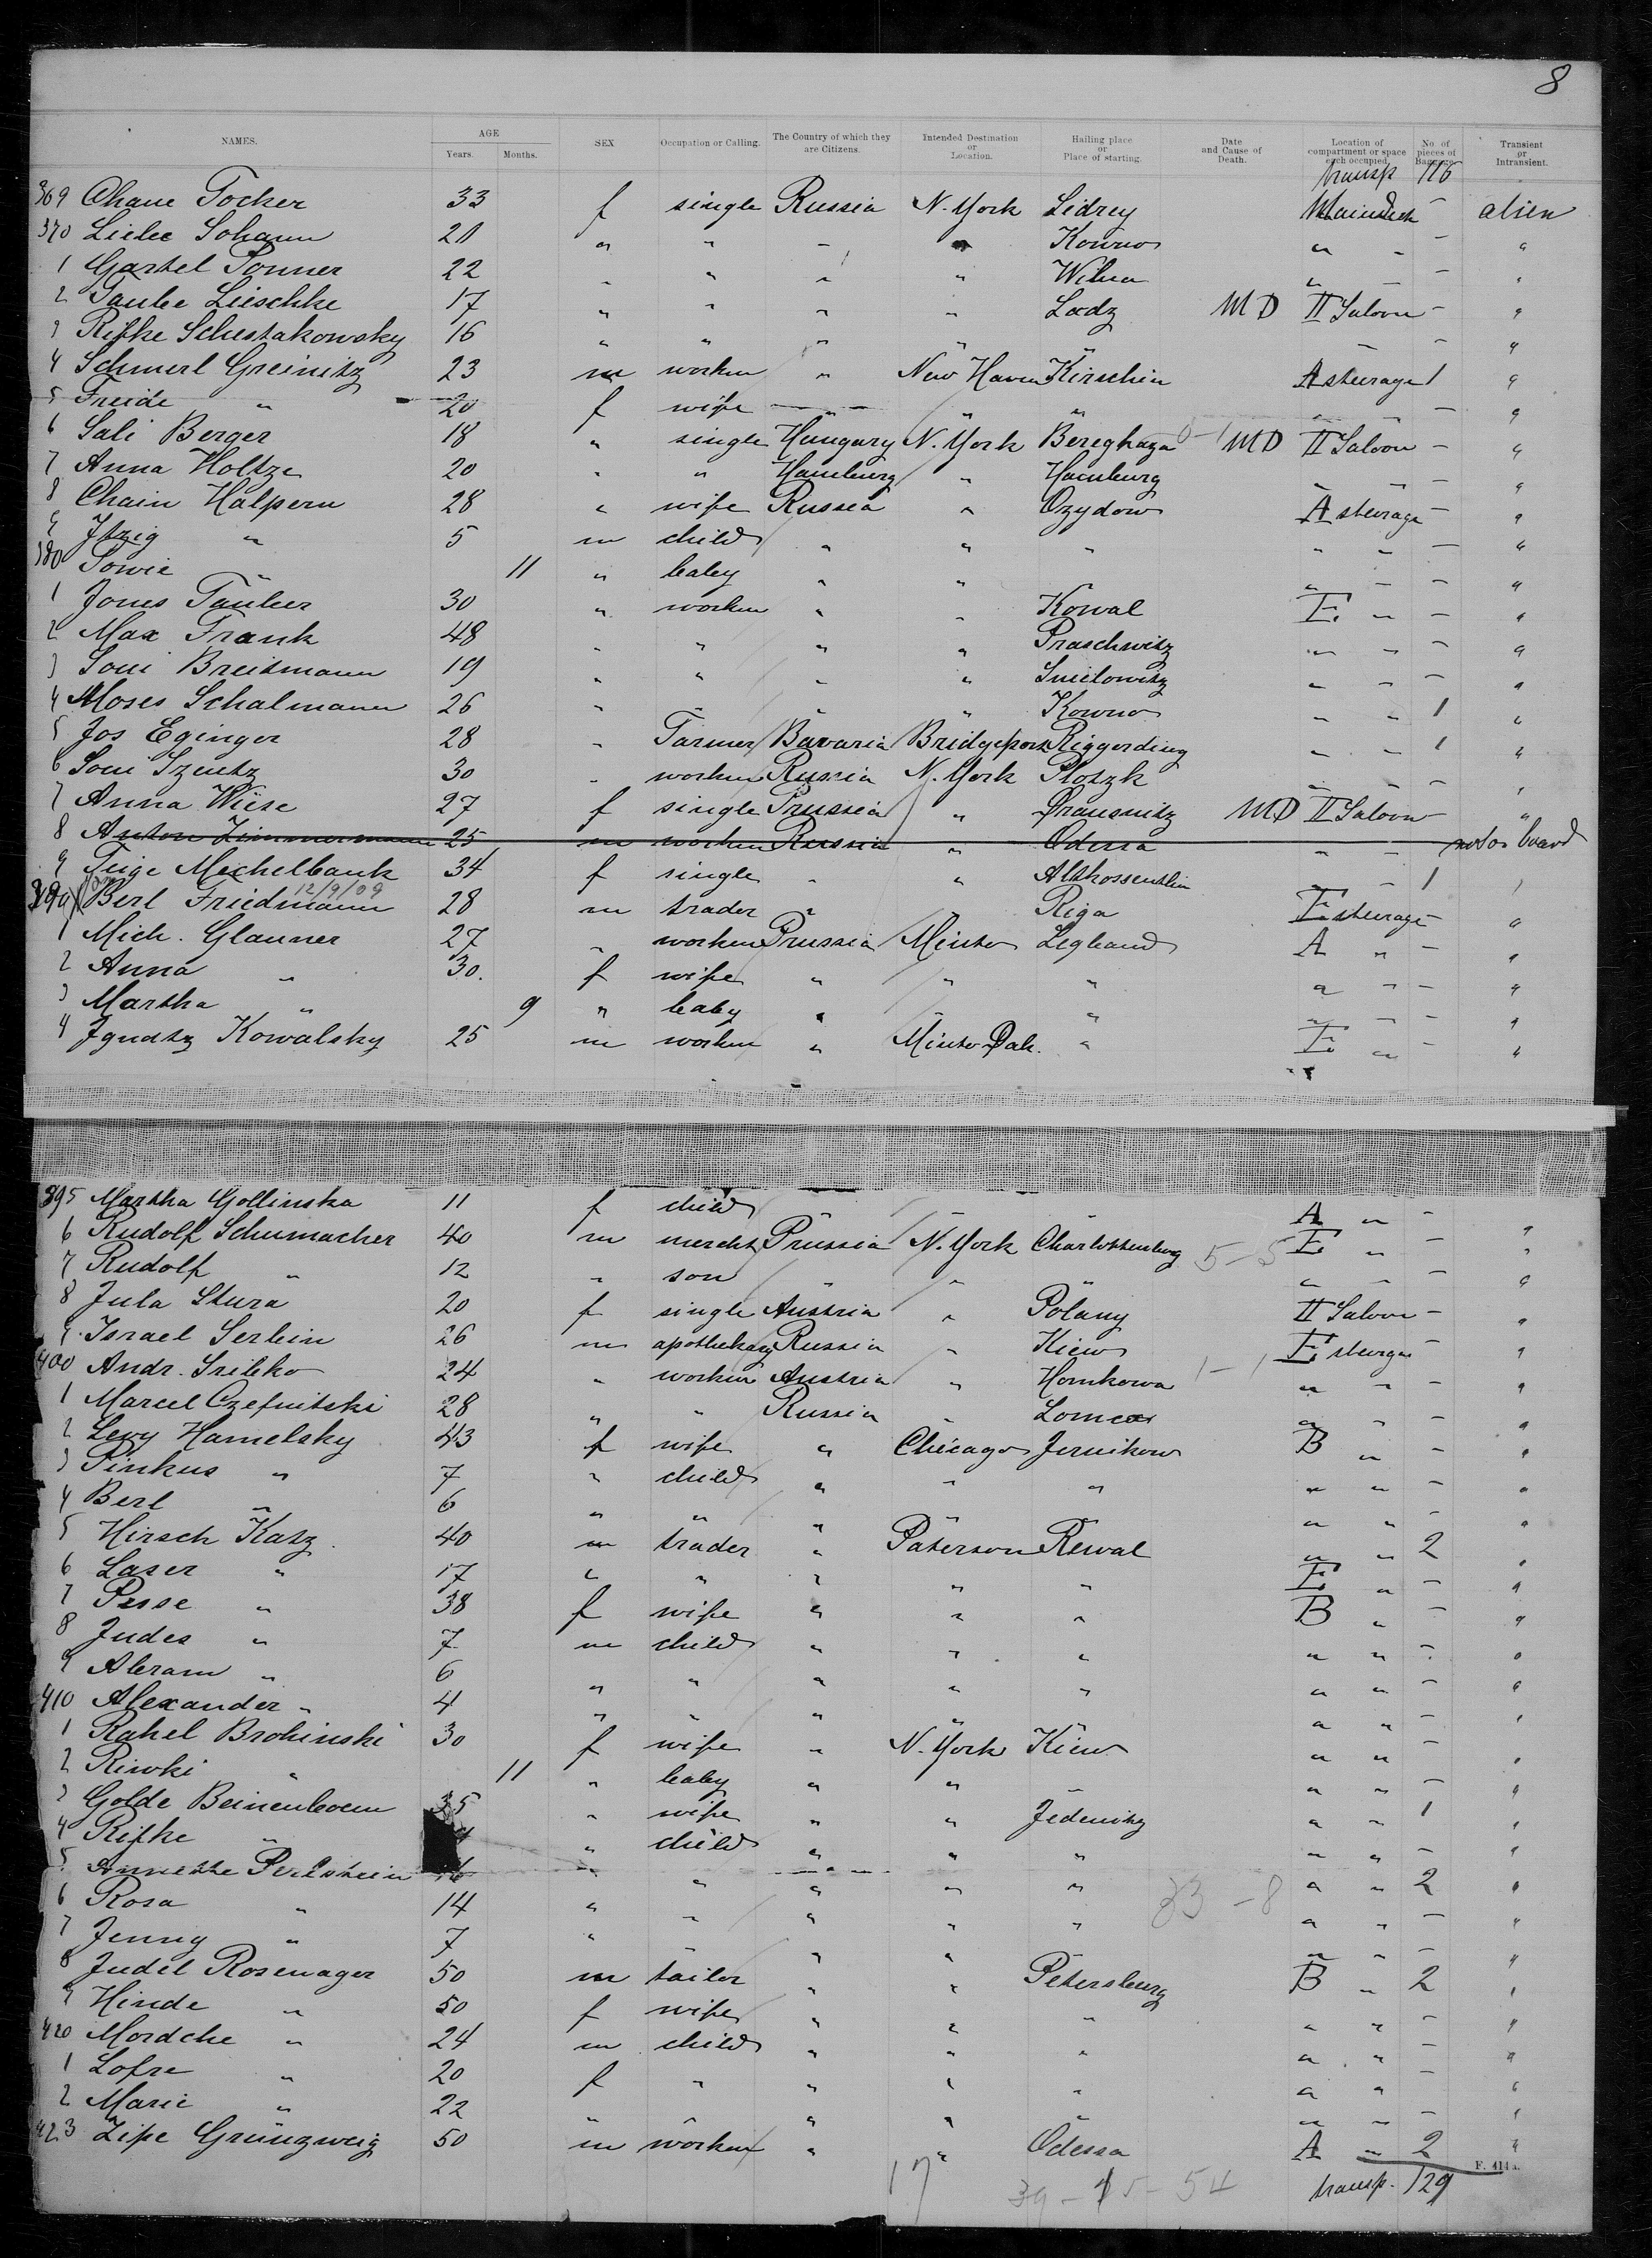 8
NAMES. AGE Years. Months. SEX Occupation or Calling. The Country of which they are Citizens. Intended Destination or Location. Hailing place or Place of starting. Date and Cause of Death. Location of compartment or space each occupied. No. of pieces of Baggage. Transient or Intransient.
transp 116
369 Chane Tocker 33 f single Russia N. York Lidrey Maindeck - alien
370 Liebe Sohann 21 " " " " Kowno " " - "
1 Gartel Ponner 22 " " " " Wilna " " - "
2 Taube Lieschke 17 " " " " Lodz MD II Saloon - "
3 Rifke Schestakowsky 16 " " " " " " " - "
4 Schmerl Greinitz 23 m worker " New Haven Kirschin A steerage 1 "
5 Freide " 20 f wife " " " " " - "
6 Sali Berger 18 " single Hungary N. York Bereghaza MD II Saloon - "
7 Anna Holtze 20 " " Hamburg " Hamburg " " - "
8 Chain Halpern 28 " wife Russia " Ozydow A steerage - "
9 Itzig " 5 m child " " " " " - "
380 Sowie " 11 " baby " " " " - "
1 Jones Tauber 30 " worker " " Kowal E " - "
2 Max Frank 48 " " " " Praschwitz " " - "
3 Soni Breitmann 19 " " " " Snietowitz " " - "
4 Moses Schalmann 26 " " " " Kowno " " 1 "
5 Jos Eginger 28 " Farmer Bavaria Bridgeport Riggerding " " 1 "
6 Soni Szentz 30 " worker Russia N. York Plotzk " " - "
7 Anna Wiese 27 f single Prussia " Drausnitz MD II Saloon - "
8 Anton Zimmermann 25 m worker Russia " Odessa " " not on board
9 Feige Mechelbank 34 f single " " Altkossenthin " " 1 "
12/9/09
390 Berl Friedmann 28 m trader " " Riga E steerage - "
1 Mich. Glanner 27 " worker Prussia Minto Legband A " - "
2 Anna " 30. f wife " " " " " - "
3 Martha " 9 " baby " " " " " - "
4 Ignatz Kowalsky 25 m worker " Minto Dak. " E " - "
395 Martha Gollinska 11 f child " " " A " - "
6 Rudolf Schumacher 40 m mercht Prussia N. York Charlottenburg 5-5 E " - "
7 Rudolf " 12 " son " " " " - "
8 Jula Stura 20 f single Austria " Polany II Saloon - "
9 Israel Serbin 26 m apothekary Russia " Kiew E steerage - "
400 Andr. Sribko 24 " worker Austria " Homkowa 1-1 " " - "
1 Marcel Czefnitski 28 " " Russia " Lomza " " - "
2 Levy Hamelsky 43 f wife " Chicago Jernikow B " - "
3 Pinkus " 7 " child " " " " " - "
4 Berl " 6 " " " " " " " - "
5 Hirsch Katz 40 m trader " Paterson Rewal " " 2 "
6 Laser " 17 " " " " " E " - "
7 Pesse " 38 f wife " " " B " - "
8 Judes " 7 m child " " " " " - "
9 Abram " 6 " " " " " " " - "
410 Alexander " 4 " " " " " " " - "
1 Rahel Brohinski 30 f wife " N. York Kiew " " - "
2 Riwki " 11 " baby " " " " - "
3 Golde Beinenboem 35 " wife " " Jedenitz " " 1 "
4 Rifke " " child " " " " " - "
5 Annette Perlstein 16 " " " " " " " 2 "
6 Rosa " 14 " " " " " 33-8 " " - "
7 Jenny " 7 " " " " " " - "
8 Judel Rosenager 50 m tailor " " Petersburg B " 2 "
9 Hinde " 50 f wife " " " " " - "
420 Mordche " 24 m child " " " " " - "
1 Lofre " 20 f " " " " " " - "
2 Marie " 22 " " " " " " " - "
423 Zipe Grünzweig 50 m worker " " Odessa A " 2 "
F. 414a.
17 39-15-54 transp. 129